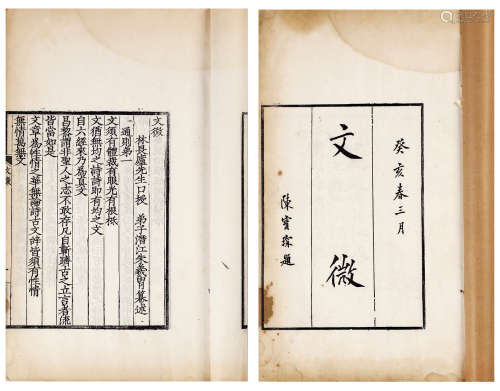 癸亥春三月
文微
陳寶琛題
文微
林畏廬先生口授 弟子潛江朱羲胄纂述
通則第一
文須有體裁有眼光有根柢
文猶無均之詩詩即有均之文
自六經來乃爲眞文
昌黎謂非聖人之志不敢存凡自蘄躋古之立言者流
皆當如是
文章爲性情之華無論詩古文辭皆須有性情
無情萬無文
文微 一